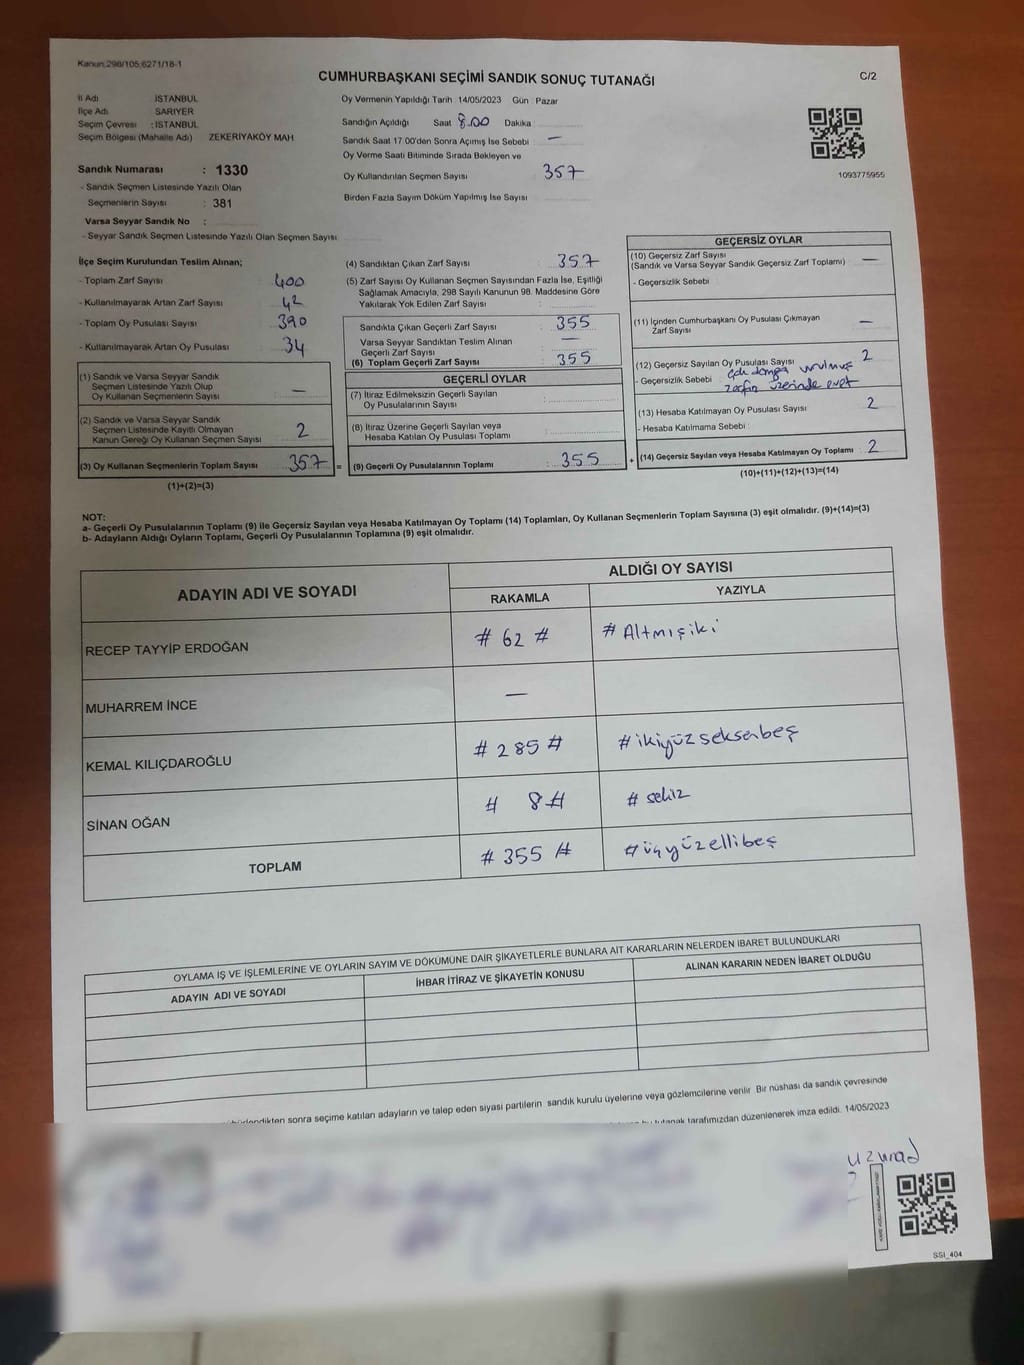 Kanun:298/105,6271/18-1
CUMHURBAŞKANI SEÇİMİ SANDIK SONUÇ TUTANAĞI
C/2
İl Adı : İSTANBUL
İlçe Adı : SARIYER
Seçim Çevresi : İSTANBUL
Seçim Bölgesi (Mahalle Adı) ZEKERİYAKÖY MAH
Sandık Numarası : 1330
- Sandık Seçmen Listesinde Yazılı Olan
Seçmenlerin Sayısı : 381
Varsa Seyyar Sandık No :
- Seyyar Sandık Seçmen Listesinde Yazılı Olan Seçmen Sayısı
Oy Vermenin Yapıldığı Tarih : 14/05/2023 Gün : Pazar
Sandığın Açıldığı Saat 8.00 Dakika
Sandık Saat 17:00'den Sonra Açılmış İse Sebebi : —
Oy Verme Saati Bitiminde Sırada Bekleyen ve
Oy Kullandırılan Seçmen Sayısı 357
Birden Fazla Sayım Döküm Yapılmış İse Sayısı
1093775955
İlçe Seçim Kurulundan Teslim Alınan;
- Toplam Zarf Sayısı : 400
- Kullanılmayarak Artan Zarf Sayısı : 42
- Toplam Oy Pusulası Sayısı : 390
- Kullanılmayarak Artan Oy Pusulası : 34
(1) Sandık ve Varsa Seyyar Sandık
Seçmen Listesinde Yazılı Olup
Oy Kullanan Seçmenlerin Sayısı : —
(2) Sandık ve Varsa Seyyar Sandık
Seçmen Listesinde Kayıtlı Olmayan
Kanun Gereği Oy Kullanan Seçmen Sayısı : 2
(3) Oy Kullanan Seçmenlerin Toplam Sayısı : 357 =
(1)+(2)=(3)
(4) Sandıktan Çıkan Zarf Sayısı : 357
(5) Zarf Sayısı Oy Kullanan Seçmen Sayısından Fazla İse, Eşitliği
Sağlamak Amacıyla, 298 Sayılı Kanunun 98. Maddesine Göre
Yakılarak Yok Edilen Zarf Sayısı :
Sandıkta Çıkan Geçerli Zarf Sayısı : 355
Varsa Seyyar Sandıktan Teslim Alınan
Geçerli Zarf Sayısı : —
(6) Toplam Geçerli Zarf Sayısı : 355
GEÇERLİ OYLAR
(7) İtiraz Edilmeksizin Geçerli Sayılan
Oy Pusulalarının Sayısı :
(8) İtiraz Üzerine Geçerli Sayılan veya
Hesaba Katılan Oy Pusulası Toplamı :
(9) Geçerli Oy Pusulalarının Toplamı : 355 +
GEÇERSİZ OYLAR
(10) Geçersiz Zarf Sayısı
(Sandık ve Varsa Seyyar Sandık Geçersiz Zarf Toplamı) : —
- Geçersizlik Sebebi :
(11) İçinden Cumhurbaşkanı Oy Pusulası Çıkmayan
Zarf Sayısı : —
(12) Geçersiz Sayılan Oy Pusulası Sayısı : 2
- Geçersizlik Sebebi : damga vurulmuş
zarfın üzerinde evet
(13) Hesaba Katılmayan Oy Pusulası Sayısı : 2
- Hesaba Katılmama Sebebi :
(14) Geçersiz Sayılan veya Hesaba Katılmayan Oy Toplamı : 2
(10)+(11)+(12)+(13)=(14)
NOT:
a- Geçerli Oy Pusulalarının Toplamı (9) ile Geçersiz Sayılan veya Hesaba Katılmayan Oy Toplamı (14) Toplamları, Oy Kullanan Seçmenlerin Toplam Sayısına (3) eşit olmalıdır. (9)+(14)=(3)
b- Adayların Aldığı Oyların Toplamı, Geçerli Oy Pusulalarının Toplamına (9) eşit olmalıdır.
ADAYIN ADI VE SOYADI
ALDIĞI OY SAYISI
RAKAMLA
YAZIYLA
RECEP TAYYİP ERDOĞAN # 62 # # Altmışiki
MUHARREM İNCE —
KEMAL KILIÇDAROĞLU # 285 # # ikiyüzseksenbeş
SİNAN OĞAN # 8 # # sekiz
TOPLAM # 355 # # üçyüzellibeş
OYLAMA İŞ VE İŞLEMLERİNE VE OYLARIN SAYIM VE DÖKÜMÜNE DAİR ŞİKAYETLERLE BUNLARA AİT KARARLARIN NELERDEN İBARET BULUNDUKLARI
ADAYIN ADI VE SOYADI
İHBAR İTİRAZ VE ŞİKAYETİN KONUSU
ALINAN KARARIN NEDEN İBARET OLDUĞU
sonra seçime katılan adayların ve talep eden siyasi partilerin sandık kurulu üyelerine veya gözlemcilerine verilir. Bir nüshası da sandık çevresinde
tutanak tarafımızdan düzenlenerek imza edildi. 14/05/2023
SSI_404